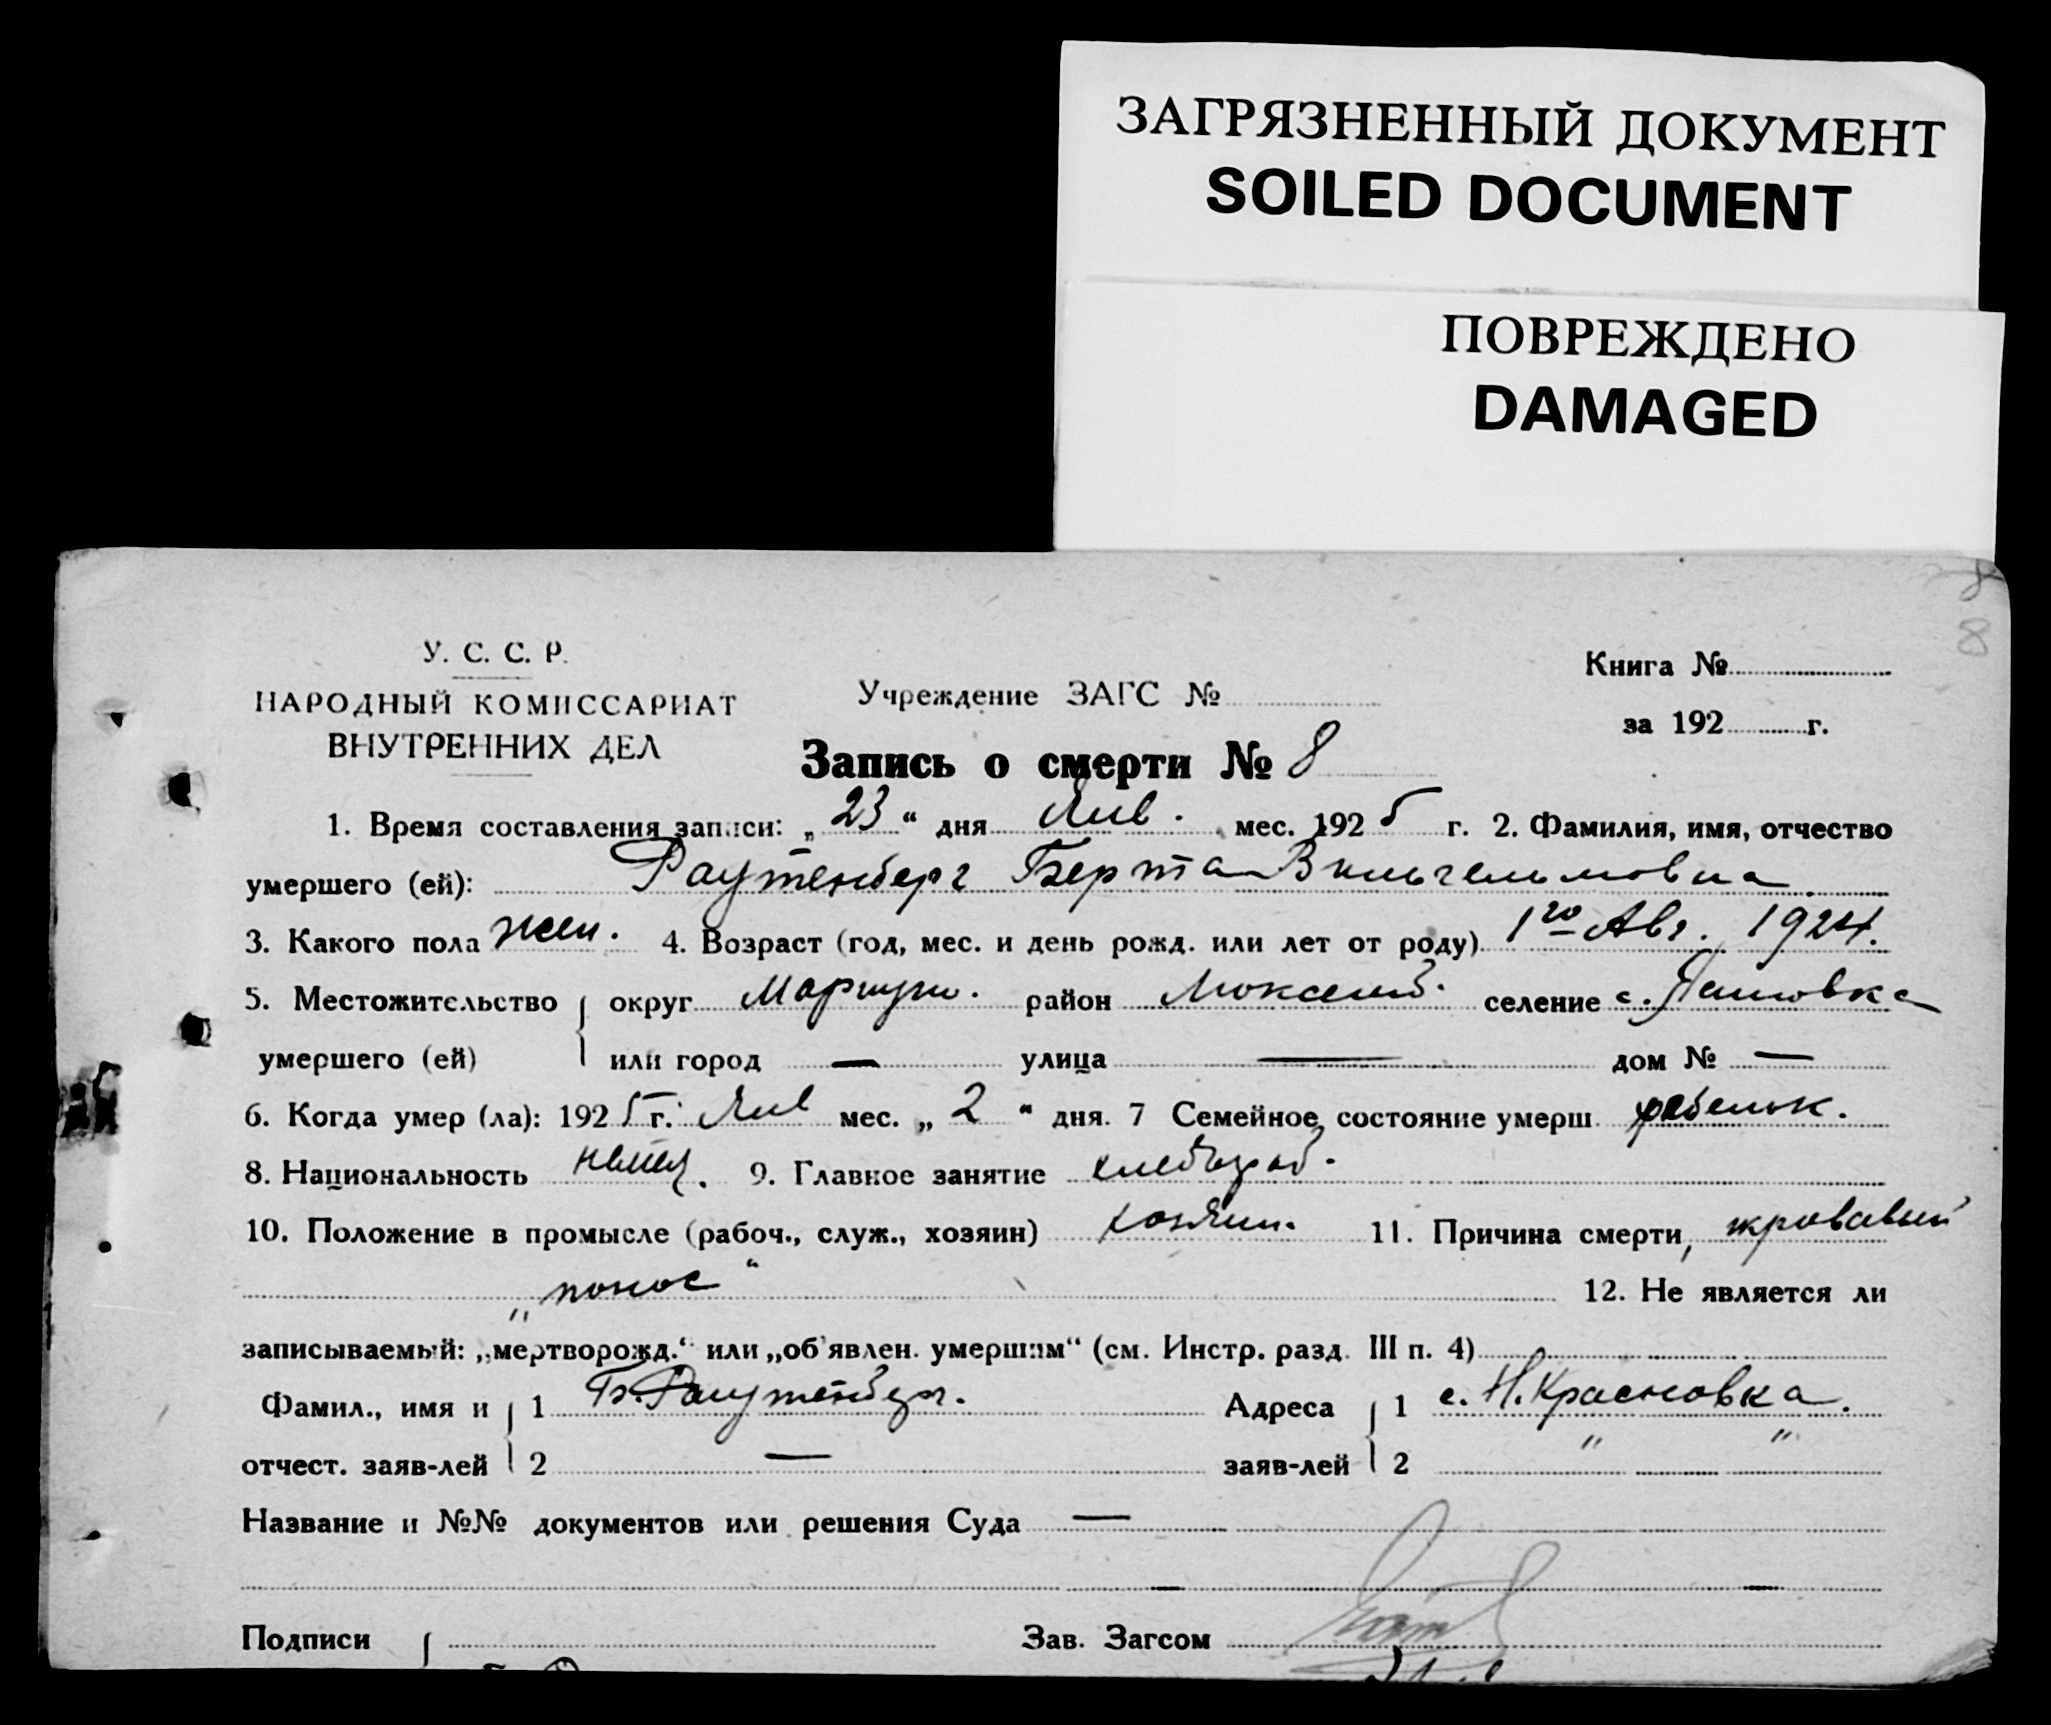 ЗАГРЯЗНЕННЫЙ ДОКУМЕНТ
SOILED DOCUMENT
ПОВРЕЖДЕНО
DAMAGED
8
У. С. С. Р.
НАРОДНЫЙ КОМИССАРИАТ
ВНУТРЕННИХ ДЕЛ
Учреждение ЗАГС №
Книга №
за 192 г.
Запись о смерти № 8
1. Время составления записи: „ 23 “ дня Янв. мес. 1925 г. 2. Фамилия, имя, отчество
умершего (ей): Раутенберг Берта Вильгельмовна
3. Какого пола жен. 4. Возраст (год, мес. и день рожд. или лет от роду) 1го Авг. 1924.
5. Местожительство округ Мариуп. район Люксемб. селение с.
умершего (ей) или город — улица — дом № —
6. Когда умер (ла): 1925 г. Янв мес. „ 2 “ дня. 7 Семейное состояние умерш. ребенок.
8. Национальность немец. 9. Главное занятие хлебороб.
10. Положение в промысле (рабоч., служ., хозяин) хозяин. 11. Причина смерти, кровавый
„понос“ 12. Не является ли
записываемый: „мертворожд.“ или „об'явлен. умершим“ (см. Инстр. разд. III п. 4)
Фамил., имя и 1 Б. Раутенберг. Адреса 1 с. Н. Красновка.
отчест. заяв-лей 2 — заяв-лей 2 " "
Название и №№ документов или решения Суда —
Подписи Зав. Загсом